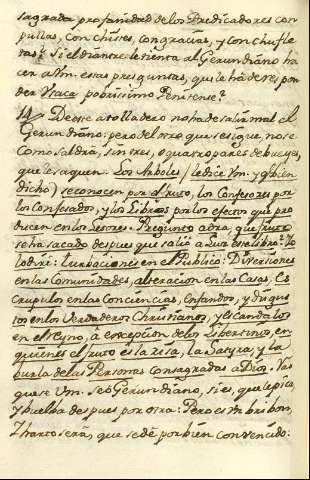 sagrada profanidad de los Predicadores con
pullas, con chistes, con gracias, y con chufle
tas? Si el diantre le tienta al Gerundiano ha
cer a Vm. estas preguntas, que le ha de res pon
der Vraca pobrissimo Penitense?
14 De este atolladero no ha de salir mal el
Gerundiano: pero del otro que se sigue, no se
como saldrà, sin tres, o quatro pares de bueyes,
que le saquen. Los Arboles (le dice Vm. y ha bien
dicho) se conocen por el fruto, los Confesores por
los Confesados, y los Libros por los efectos que pro
ducen en los Letores. Pregunto aora, que fruto
se ha sacado despues que saliò a Luz este libro? Yo
lo dirè: turbaciones en el Publico: Disensiones
en las Comunidades, alteracion en las Casas, Es
crupulos en las Conciencias, Enfandos, y disgus
tos en los Verdaderos Christianos, y Escandalos
en el Reyno, à excepcion de los Libertinos, en
quienes el fruto es la risa, la Satyra, y la
burla de las Personas consagradas a Dios. Vas
quese Vm. seò Gerundiano, si es, que le pica,
y buelba des pues por otra: Pero es Vn bribon,
Y harto serà, que se dè por bien convencido: